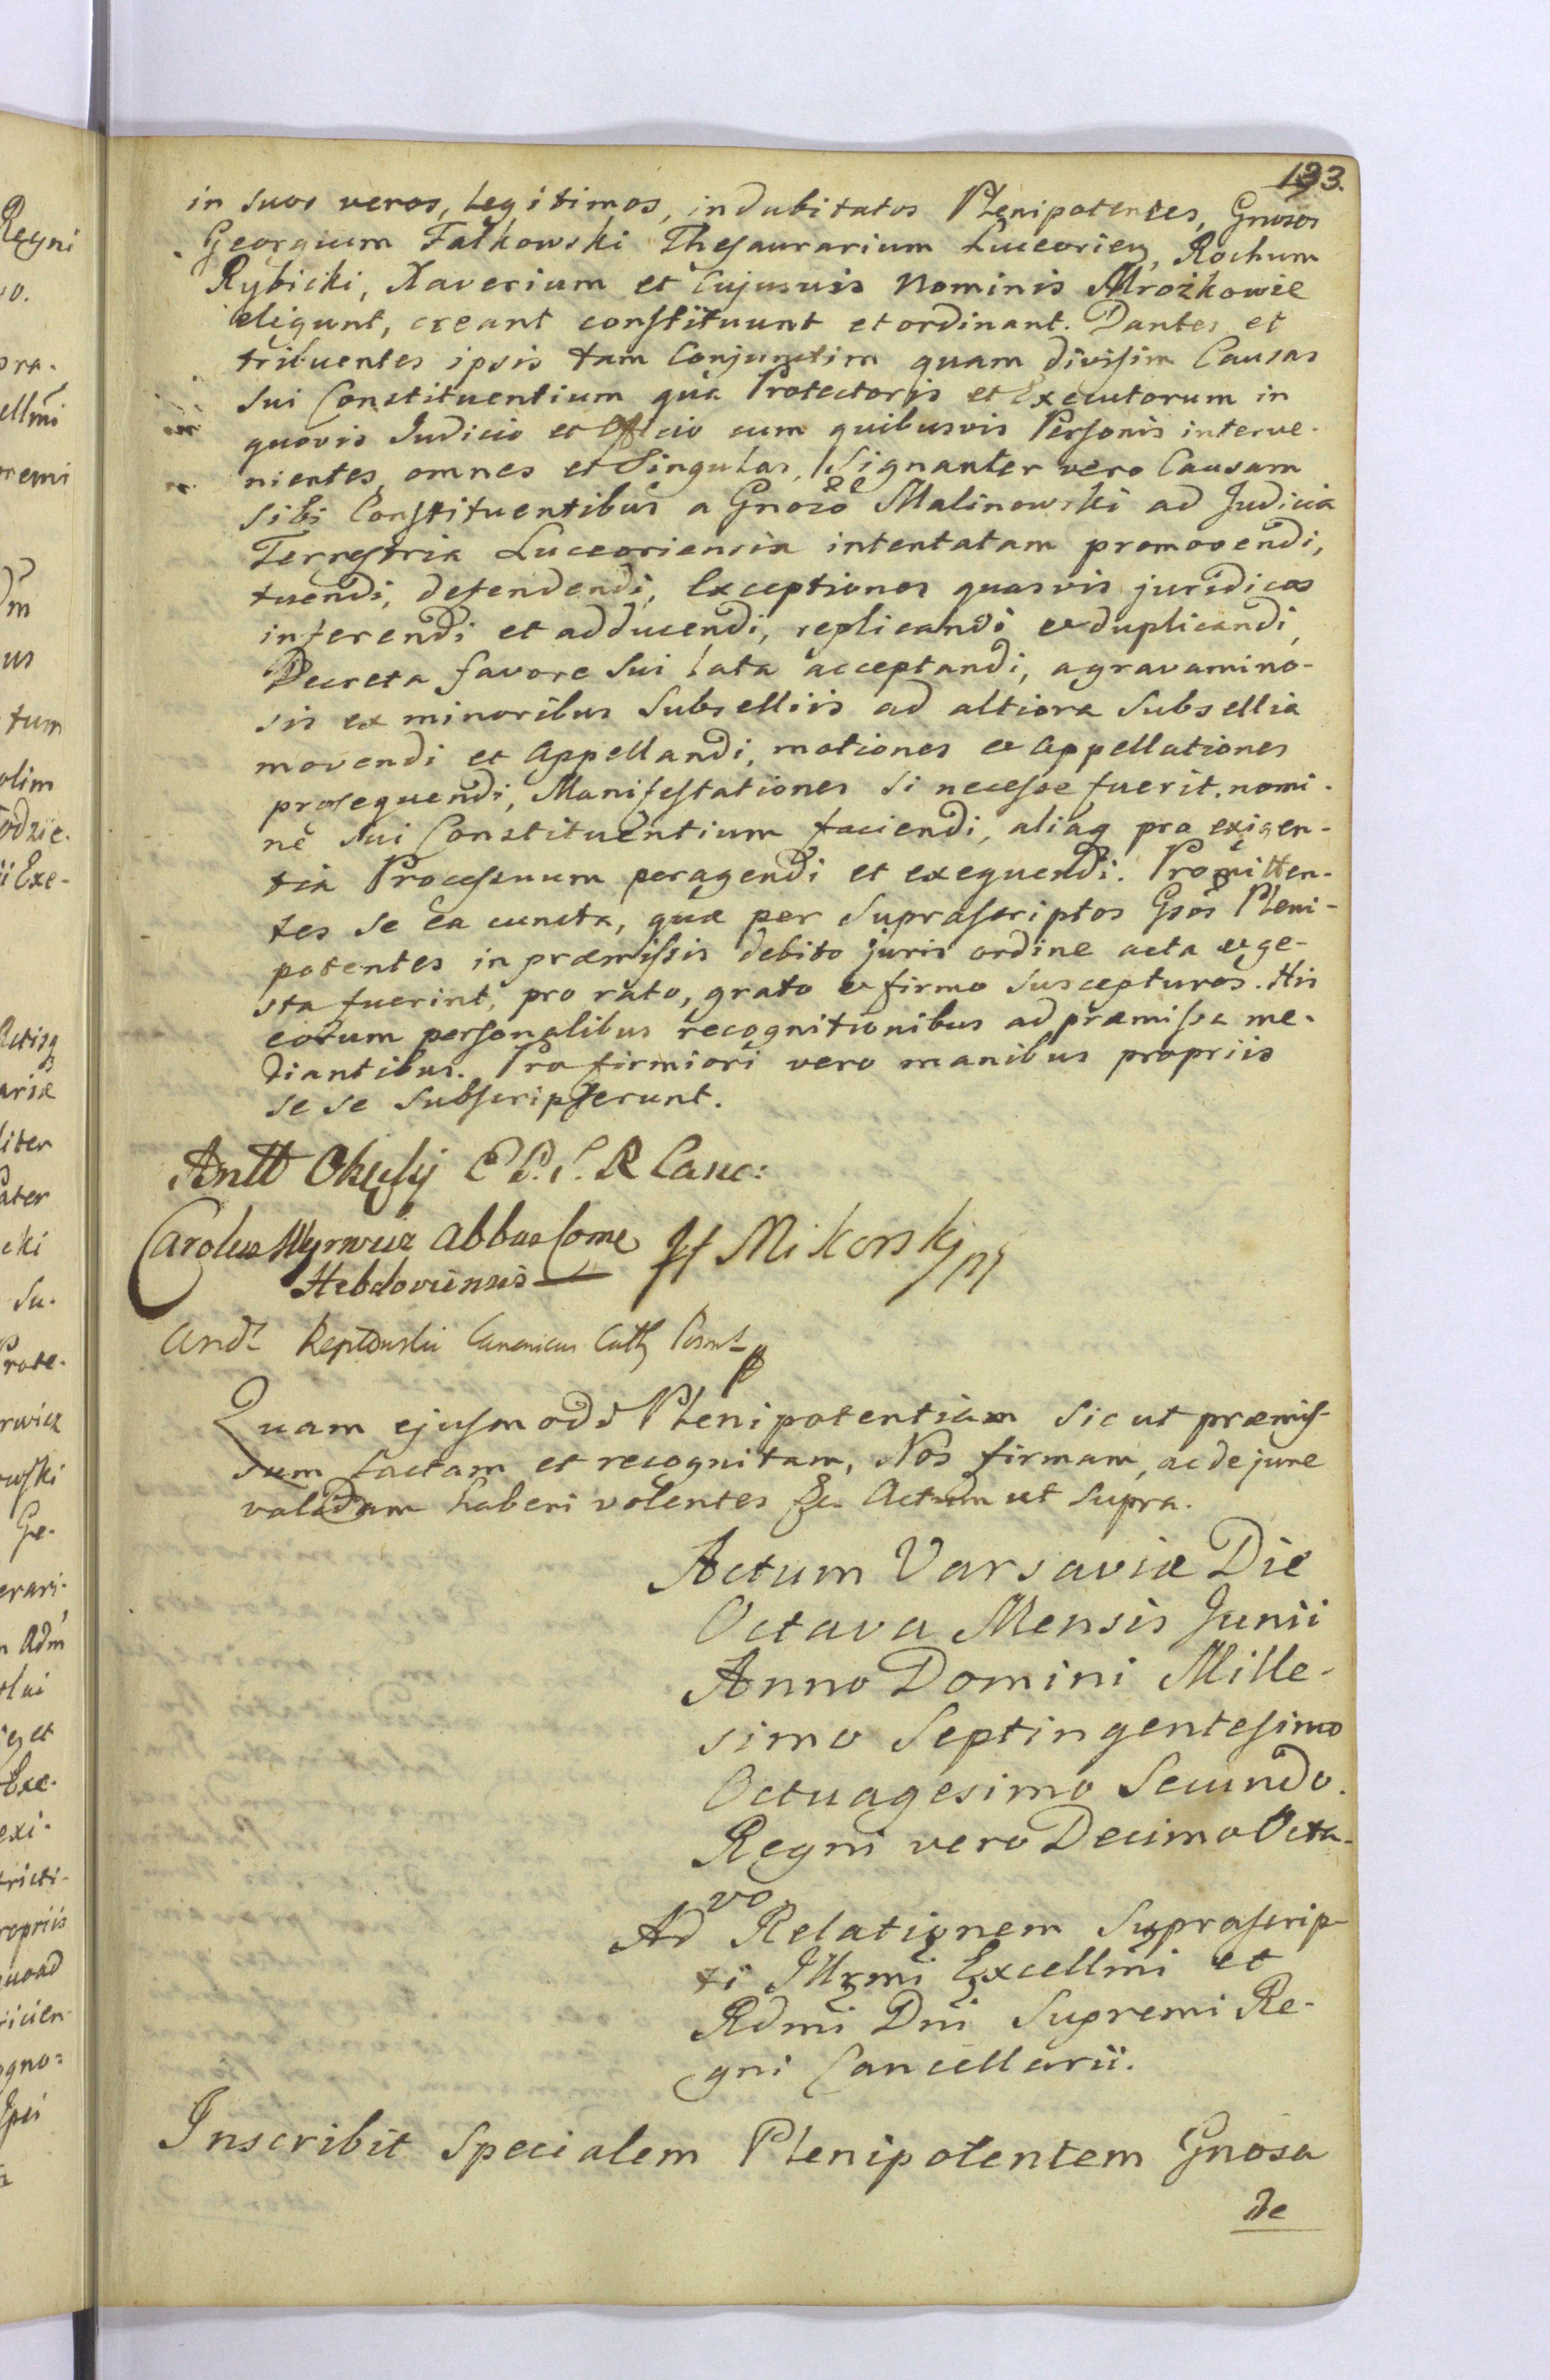 133.
in suos veros, legitimos, indubitatos Plenipotentes, Gnosos
Georgium Fałkowski Thesaurarium Luceorien, Rochum
Rybicki, Xaverium et Cujusvis Nominis Mrozkowie
eligunt, creant constituunt et ordinant. Dantes et
tribuentes ipsis tam Conjunctim quam divisim Causas
sui Constituentium quâ Protectoris et Executorum in
quovis Judicio et Officio cum quibusvis Personis interve-
nientes, omnes et Singulas, Signanter vero Causam
sibi Constituentibus a Gnoso Malinowski ad Judicia
Terrestria Luceoriensia intentatam promovendi,
tuendi, defendendi, Exceptiones quasvis juridicas
inferendi et adducendi, replicandi et duplicandi,
Decreta favore sui lata acceptandi, agravamino-
sis ex minoribus Subselliis ad altiora Subsellia
movendi et Appellandi, motiones et Appellationes
prosequendi, Manifestationes si necesse fuerit nomi-
ne sui Constituentium faciendi, aliaq pro exigen-
tia Processuum peragendi et exequendi. Promitten-
tes se ea cuncta, quæ per Suprascriptos Gsos Pleni-
potentes in præmissis debito juris ordine acta et ge-
sta fuerint, pro rato, grato et firmo suscepturos. His
eorum personalibus recognitionibus ad præmissa me-
diantibus. Pro firmiori vero manibus propriis
se se subscripserunt.
Antt Okęcky E P. S. R Canc:
Carolus Wyrwicz Abbas Come
Hebdoviensis
Mikorski
And. Reptowski Canonicus Cath Posn
Quam ejusmodi Plenipotentiam sic ut præmis-
sum factam et recognitam, Nos firmam, ac de jure
validam haberi volentes &c. Actum ut supra.
Actum Varsaviæ Die
Octava Mensis Junii
Anno Domini Mille-
simo Septingentesimo
Octuagesimo Secundo.
Regni vero Decimo Octa-
vo
Ad Relationem Suprascrip-
ti Illrmi Excellmi et
Rdmi Dni Supremi Re-
gni Cancellarii.
Inscribit Specialem Plenipotentem Gnosa
de